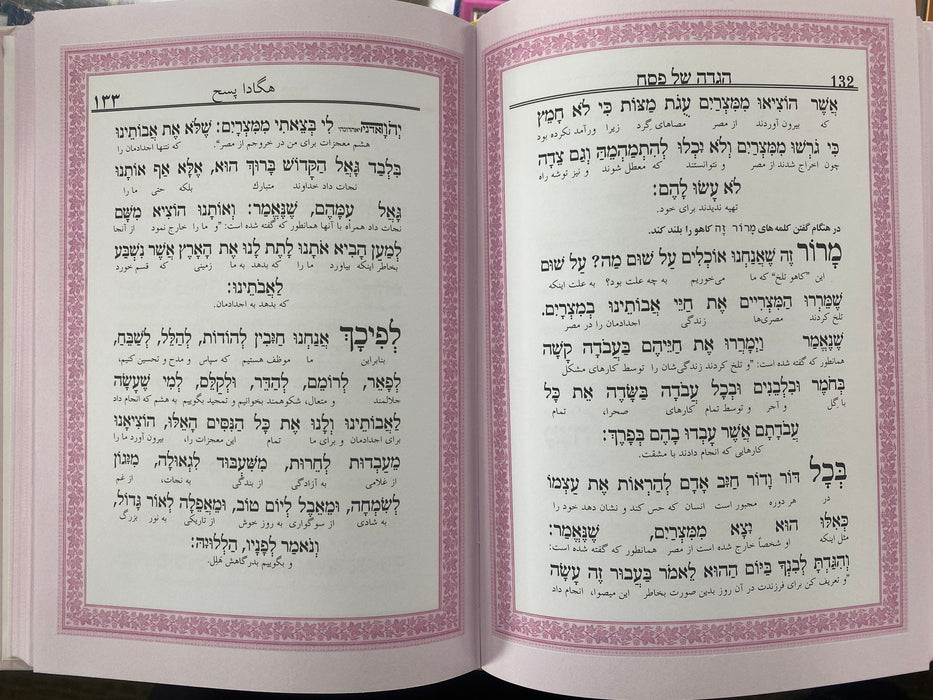 132 הגדה של פסח
אֲשֶׁר הוֹצִיאוּ מִמִּצְרַיִם עֻגֹת מַצּוֹת כִּי לֹא חָמֵץ
که بیرون آوردند از مصر مصاهای گِرد زیرا ورآمد نکرده بود
כִּי גֹרְשׁוּ מִמִּצְרַיִם וְלֹא יָכְלוּ לְהִתְמַהְמֵהַּ וְגַם צֵדָה
چون اخراج شدند از مصر و نتوانستند که معطل شوند و نیز توشه راه
לֹא עָשׂוּ לָהֶם:
تهیه ندیدند برای خود.
در هنگام گفتن کلمه های מָרוֹר זֶה کاهو را بلند کند.
מָרוֹר זֶה שֶׁאֲנַחְנוּ אוֹכְלִים עַל שׁוּם מַה? עַל שׁוּם
این "کاهو تلخ" که ما می‌خوریم به چه علت بود؟ به علت اینکه
שֶׁמֵּרְרוּ הַמִּצְרִיִּים אֶת חַיֵּי אֲבוֹתֵינוּ בְּמִצְרַיִם.
تلخ کردند مصری‌ها زندگی اجدادمان را در مصر
שֶׁנֶּאֱמַר וַיְמָרְרוּ אֶת חַיֵּיהֶם בַּעֲבֹדָה קָשָׁה
همانطور که گفته شده است: "و تلخ کردند زندگی‌شان را توسط کارهای مشکل
בְּחֹמֶר וּבִלְבֵנִים וּבְכָל עֲבֹדָה בַּשָּׂדֶה אֵת כָּל
با گِل و آجر و توسط تمام کارهای صحرا، تمام
עֲבֹדָתָם אֲשֶׁר עָבְדוּ בָהֶם בְּפָרֶךְ:
کارهایی که انجام دادند با مشقت.
בְּכָל דּוֹר וָדוֹר חַיָּב אָדָם לְהַרְאוֹת אֶת עַצְמוֹ
در هر دوره مجبور است انسان که حس کند و نشان دهد خود را
כְּאִלּוּ הוּא יָצָא מִמִּצְרַיִם, שֶׁנֶּאֱמַר:
مثل اینکه او شخصاً خارج شده است از مصر همانطور که گفته شده است:
וְהִגַּדְתָּ לְבִנְךָ בַּיּוֹם הַהוּא לֵאמֹר בַּעֲבוּר זֶה עָשָׂה
"و تعریف کن برای فرزندت در آن روز بدین صورت بخاطر این میصوا، انجام داد
هگادا پسح ۱۳۳
יְהֹוָה לִי בְּצֵאתִי מִמִּצְרָיִם: שֶׁלֹּא אֶת אֲבוֹתֵינוּ
هشم معجزات برای من در خروجم از مصر". که نتنها اجدادمان را
בִּלְבַד גָּאַל הַקָּדוֹשׁ בָּרוּךְ הוּא, אֶלָּא אַף אוֹתָנוּ
نجات داد خداوند متبارك بلکه حتی ما را
גָּאַל עִמָּהֶם, שֶׁנֶּאֱמַר: וְאוֹתָנוּ הוֹצִיא מִשָּׁם
نجات داد همراه با آنها همانطور که گفته شده است: "و ما را خارج نمود از آنجا
לְמַעַן הָבִיא אֹתָנוּ לָתֶת לָנוּ אֶת הָאָרֶץ אֲשֶׁר נִשְׁבַּע
بخاطر اینکه بیاورد ما را که بدهد به ما زمینی که قسم خورد
לַאֲבֹתֵינוּ:
که بدهد به اجدادمان.
לְפִיכָךְ אֲנַחְנוּ חַיָּבִין לְהוֹדוֹת, לְהַלֵּל, לְשַׁבֵּחַ,
بنابراین ما موظف هستیم که سپاس و مدح و تحسین کنیم،
לְפָאֵר, לְרוֹמֵם, לְהַדֵּר, וּלְקַלֵּס, לְמִי שֶׁעָשָׂה
جلالمند و متعال، شکوهمند بخوانیم و تمجید بگوییم به هشم که انجام داد
לַאֲבוֹתֵינוּ וְלָנוּ אֶת כָּל הַנִּסִּים הָאֵלּוּ, הוֹצִיאָנוּ
برای اجدادمان و برای ما تمام این معجزات را، بیرون آورد ما را
מֵעַבְדוּת לְחֵרוּת, מִשִּׁעְבּוּד לִגְאוּלָּה, מִיָּגוֹן
از غلامی به آزادگی از بندگی به نجات، از غم
לְשִׂמְחָה, וּמֵאֵבֶל לְיוֹם טוֹב, וּמֵאֲפֵלָה לְאוֹר גָּדוֹל,
به شادی از سوگواری به روز خوش از تاریکی به نور بزرگ
וְנֹאמַר לְפָנָיו, הַלְלוּיָהּ:
و بگوییم بدرگاهش هَلِل.